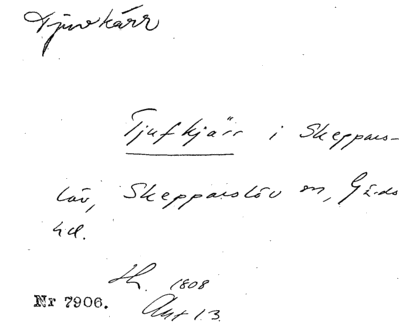 Tjuvkärr
Tjufkjärr i Skeppars-
löv, Skepparslöv sn, Gärds
hd.
Sk. 1808
Nr 7906. Akt 13.